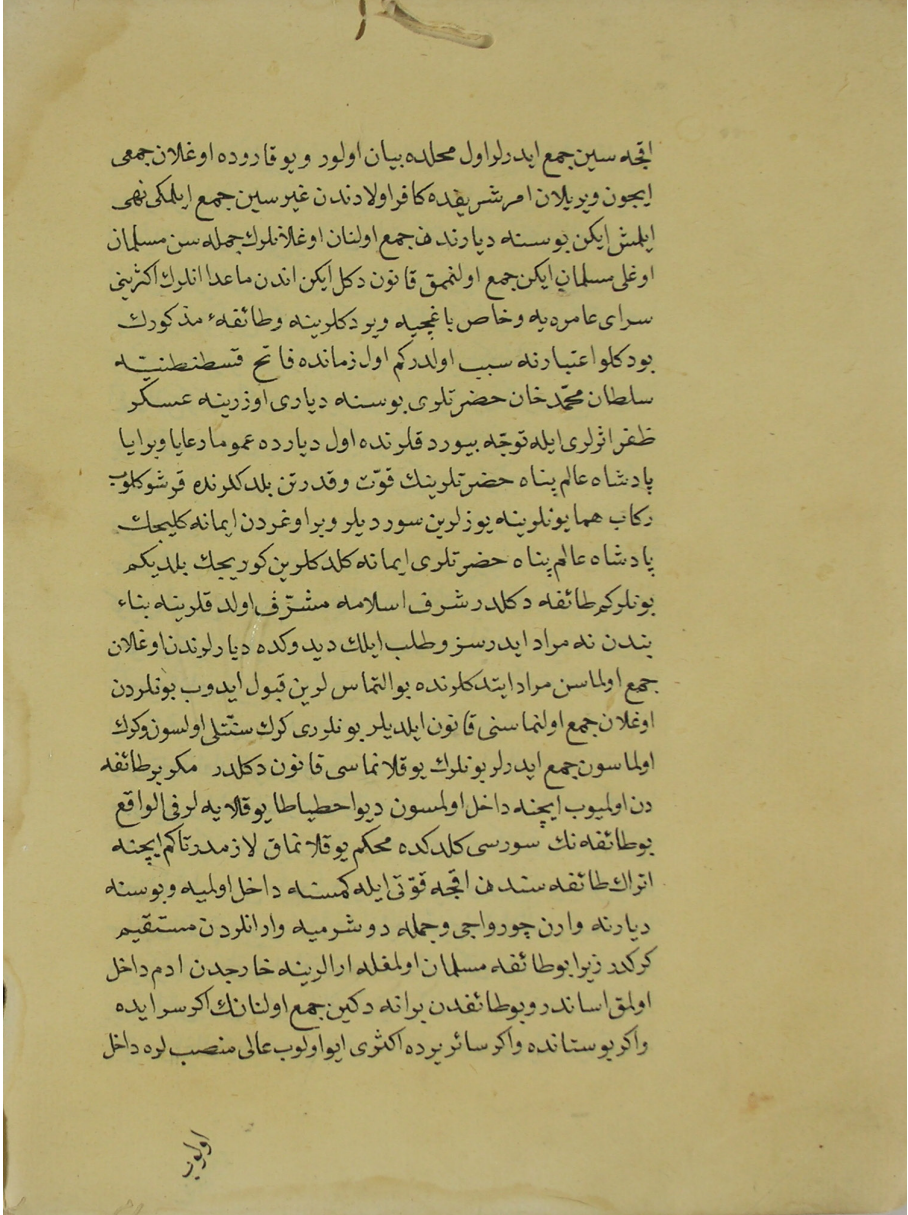 اقچه سین جمع ایدرلر اول محلده بیان اولور و یوقاروده اوغلان جمعی
ایچون ویریلان امر شریفده کافر اولادندن غیر سین جمع ایلمکی نهی
ایلمش ایکن بوسنه دیارندن جمع اولنان اوغلانلرك جمله سن مسلمان
اوغلی مسلمان ایکن جمع اولنمق قانون دکل ایکن اندن ماعدا انلرك اکثرینی
سرای عامره یه و خاص باغچیه ویردکلرینه و طائفهٔ مذکورك
بودکلو اعتبارنه سبب اولدرکم اول زمانده فاتح قسطنطنیه
سلطان محمّد خان حضرتلری بوسنه دیاری اوزرینه عسکر
ظفر اثرلری ایله توجّه بیوردقلرنده اول دیارده عموما رعایا و برایا
پادشاه عالم پناه حضرتلرینك قوّت و قدرتن بلدکلرنده قرشو کلوب
رکاب همایونلرینه یوزلرین سوردیلر و براوغردن ایمانه کلیجك
پادشاه عالم پناه حضرتلری ایمانه کلدکلرین کوریجك بلدیکم
بونلرکم طائفه دکلدر شرف اسلامه مشرّف اولدقلرینه بناء
بندن نه مراد ایدرسز و طلب ایلك دیدوکده دیارلرندن اوغلان
جمع اولماسن مراد ایتدکلرنده بو التماس لرین قبول ایدوب بونلردن
اوغلان جمع اولنماسنی قانون ایلدیلر بونلری کرك سنّتلی اولسون و کرك
اولماسون جمع ایدرلر بونلرك یوقلانماسی قانون دکلدر مکر بر طائفه
دن اولمیوب ایچنه داخل اولمسون دیو احطیاطا یوقلایه لر فی الواقع
بو طائفه نك سورسی کلدکده محکم یوقلانماق لازمدر تاکم ایچنه
اتراك طائفه سندن اقچه قوّتی ایله کمسنه داخل اولمیه و بوسنه
دیارنه وارن چورواجی و جمله دوشرمیه وارانلردن مستقیم
کرکدر زیرا بو طائفه مسلمان اولمغله ارالرینه خارجدن ادم داخل
اولمق اساندر و بو طائفدن بر انه دکین جمع اولنانك اکر سرایده
واکر بوستانده واکر سائر یرده اکثری ایو اولوب عالی منصب لره داخل
اولوب